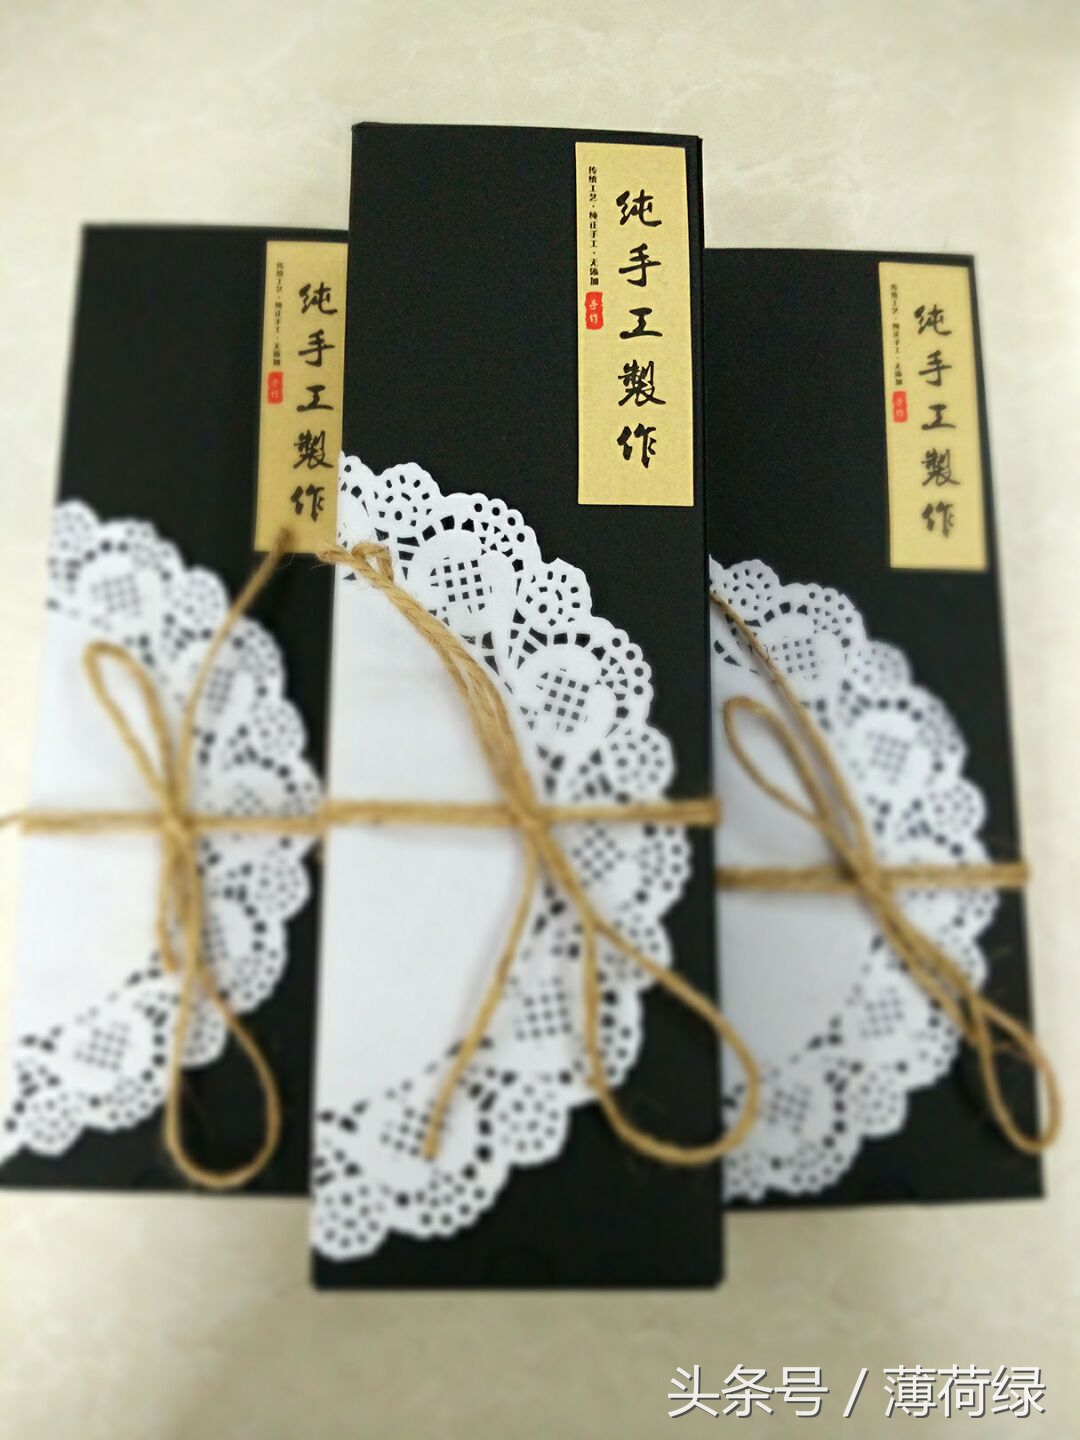 传统工艺·纯正手工·无添加
手作
纯手工製作
传统工艺·纯正手工·无添加
手作
纯手工製作
传统工艺·纯正手工·无添加
手作
纯手工製作
头条号 / 薄荷绿